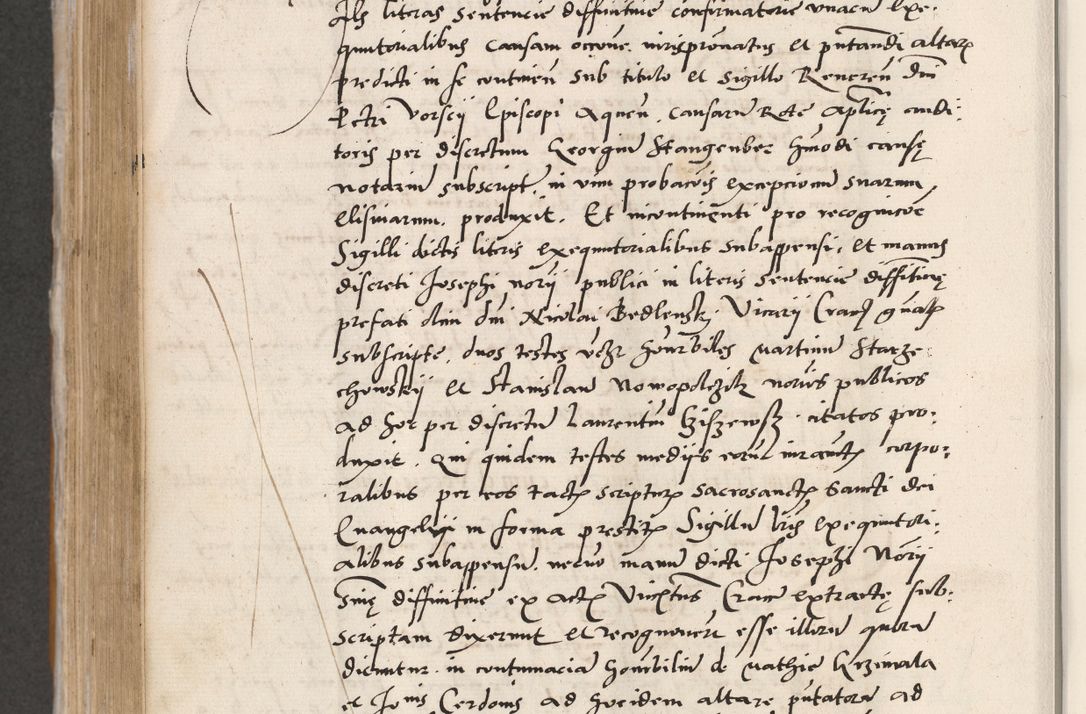 Als literas Sentencie diffinitive confirmatorie unacu exe-
qutorialibus causam occne. iurispronatus et putandi altar
predicti in se continen sub titulo et Sigillo Reveren dni
Petri Vorscij Episcopi Aquen. causaru Rote Aplice audi-
toris per discretum Georgiu Stangenber hmodi cause
notariu subscript. in vim probacois excepcionu suarum
elisivarum. produxit. Et incontinenti pro recognicoe
Sigilli dictis literis exequutorialibus subappensi, et manus
discreti Josephi norij publici in literis Sentencie diffinitive
prefati olim dni Nicolai Bedlenski Vicarij Crac gnalis
subscripte. duos testes vcz honrbiles Martinu Starze-
chowskij et Stanislau Nowopolczik norios publicos
ad hoc per discretu Laurentiu citatos pro-
duxit. Qui quidem testes medijs eoru iurant corpo-
ralibus per eos tact scriptur sacrosanct Sancti dei
Evangelij in forma prestit Sigillu lris exequutori-
alibus subappensu. necno manu dicti Josephi Norij
Snie diffinitive ex act Vicrtus Crac extracte sub-
scriptam dixerunt et recognoverut esse illoru quoru
dicuntur. in contumacia honrbiliu d. Mathie Krzimala
et Jonis Cerdonis ad hocidem altare putatoru ad